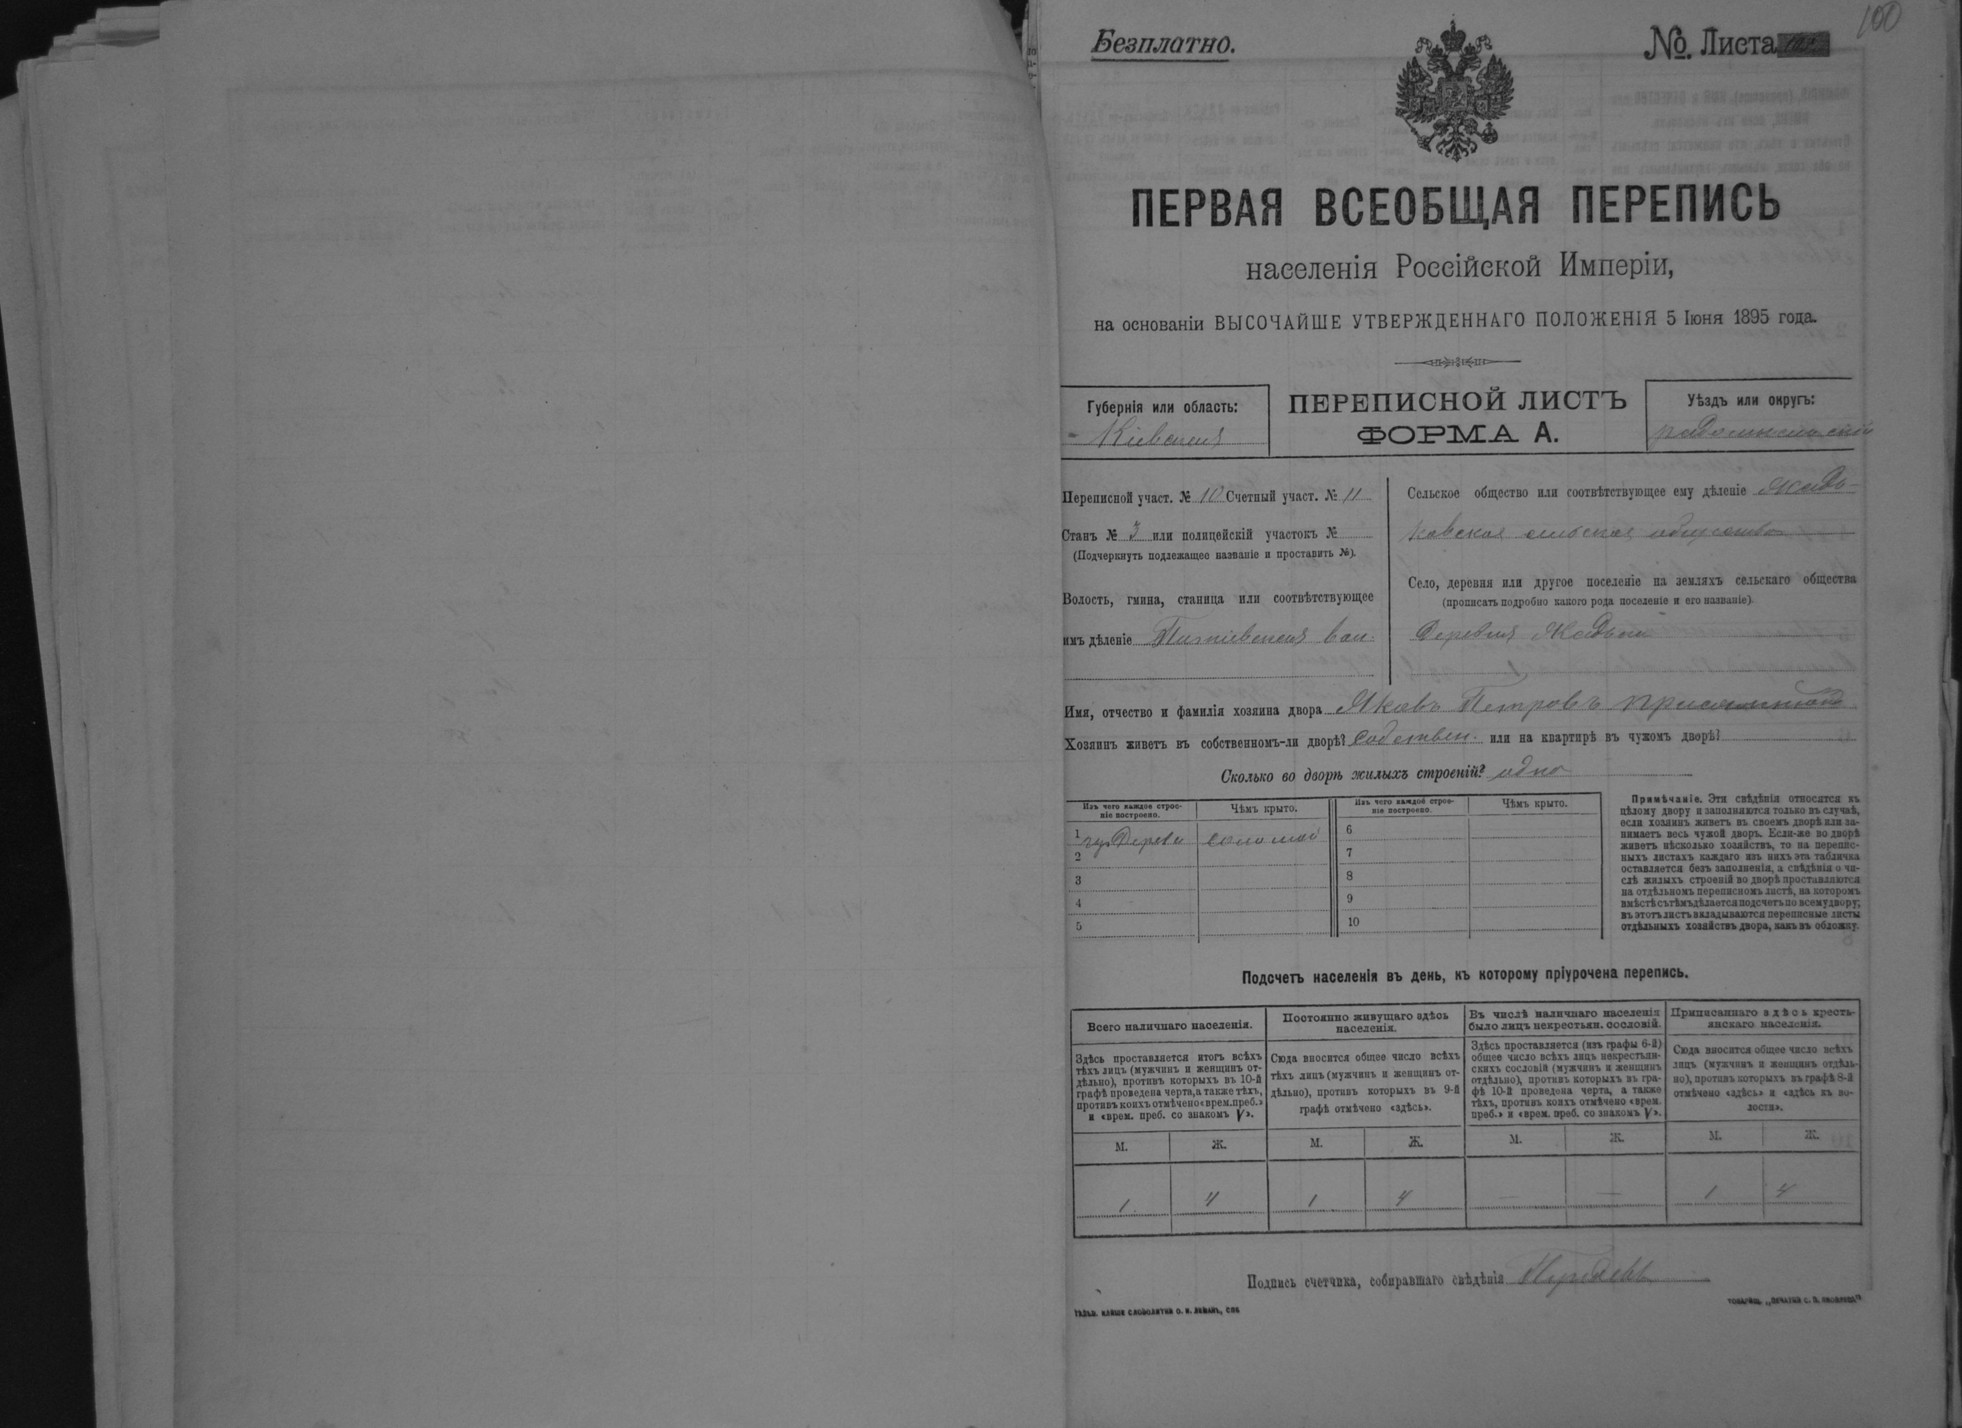 100
Безплатно.
№ Листа
ПЕРВАЯ ВСЕОБЩАЯ ПЕРЕПИСЬ
населенія Россійской Имперіи,
на основаніи ВЫСОЧАЙШЕ УТВЕРЖДЕННАГО ПОЛОЖЕНІЯ 5 Іюня 1895 года.
Губернія или область:
Кіевская
ПЕРЕПИСНОЙ ЛИСТЪ
ФОРМА А.
Уѣздъ или округъ:
Переписной участ. № 10 Счетный участ. № 11
Станъ № 3 или полицейскій участокъ №
(Подчеркнуть подлежащее названіе и проставить №).
Волость, гмина, станица или соотвѣтствующее
имъ дѣленіе
Сельское общество или соотвѣтствующее ему дѣленіе
Село, деревня или другое поселеніе на земляхъ сельскаго общества
(прописать подробно какого рода поселеніе и его названіе).
Деревня
Имя, отчество и фамилія хозяина двора Яковъ Петровъ
Хозяинъ живетъ въ собственномъ-ли дворѣ? Собствен. или на квартирѣ въ чужомъ дворѣ?
Сколько во дворѣ жилыхъ строеній? одно
Изъ чего каждое строе-
ніе построено.
Чѣмъ крыто.
Изъ чего каждое строе-
ніе построено.
Чѣмъ крыто.
1 дерева соломой
2
3
4
5
6
7
8
9
10
Примѣчаніе. Эти свѣдѣнія относятся къ
цѣлому двору и заполняются только въ случаѣ,
если хозяинъ живетъ въ своемъ дворѣ или за-
нимаетъ весь чужой дворъ. Если-же во дворѣ
живетъ нѣсколько хозяйствъ, то на перепис-
ныхъ листахъ каждаго изъ нихъ эта табличка
оставляется безъ заполненія, а свѣдѣнія о чи-
слѣ жилыхъ строеній во дворѣ проставляются
на отдѣльномъ переписномъ листѣ, на которомъ
вмѣстѣ съ тѣмъ дѣлается подсчетъ по всему двору;
въ этотъ листъ вкладываются переписные листы
отдѣльныхъ хозяйствъ двора, какъ въ обложку.
Подсчетъ населенія въ день, къ которому пріурочена перепись.
Всего наличнаго населенія.
Здѣсь проставляется итогъ всѣхъ
тѣхъ лицъ (мужчинъ и женщинъ от-
дѣльно), противъ которыхъ въ 10-й
графѣ проведена черта, а также тѣхъ,
противъ коихъ отмѣчено «врем. преб.»
и «врем. преб. со знакомъ V».
Постоянно живущаго здѣсь
населенія.
Сюда вносится общее число всѣхъ
тѣхъ лицъ (мужчинъ и женщинъ от-
дѣльно), противъ которыхъ въ 9-й
графѣ отмѣчено «здѣсь».
Въ числѣ наличнаго населенія
было лицъ некрестьян. сословій.
Здѣсь проставляется (изъ графы 6-й)
общее число всѣхъ лицъ некрестьян-
скихъ сословій (мужчинъ и женщинъ
отдѣльно), противъ которыхъ въ гра-
фѣ 10-й проведена черта, а также
тѣхъ, противъ коихъ отмѣчено «врем.
преб.» и «врем. преб. со знакомъ V».
Приписаннаго здѣсь кресть-
янскаго населенія.
Сюда вносится общее число всѣхъ
лицъ (мужчинъ и женщинъ отдѣль-
но), противъ которыхъ въ графѣ 8-й
отмѣчено «здѣсь» и «здѣсь къ во-
лости».
М. Ж. М. Ж. М. Ж. М. Ж.
1 4 1 4 — — 1 4
Подпись счетчика, собиравшаго свѣдѣнія